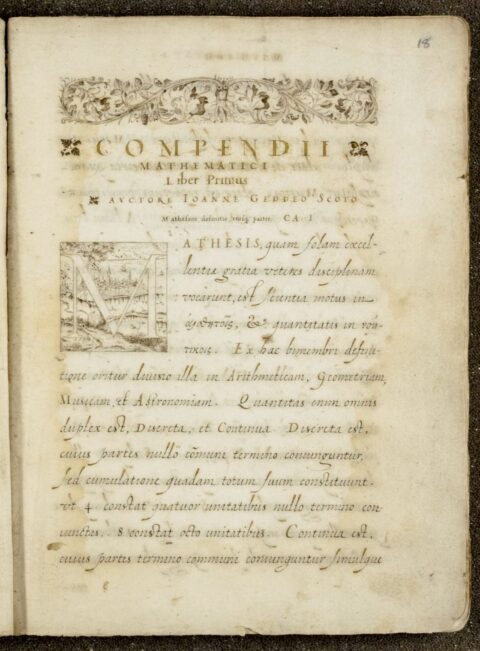 18
COMPENDII
MATHEMATICI
Liber Primus
AVCTORE IOANNE GEDDEO SCOTO
Mathesεos definitio, eiusq́ partes. CA. I
MATHESIS, quam solam excel-
lentiæ gratia veteres disciplinam
vocarunt, est scientia motus in
αἰσθητοῖς, & quantitatis in νοη-
τικοῖς. Ex hac bimembri defini-
tione oritur diuisio illa in Arithmeticam, Geometriam,
Musicam, et Astronomiam. Quantitas enim omnis
duplex est, Discreta, et Continua. Discreta est,
cuius partes nullo cõmuni termino coniunguntur,
sed cumulatione quadam totum suum constituunt.
vt 4 constat quatuor unitatibus nullo termino con-
iunctis. 8 constat octo unitatibus. Continua est,
cuius partes termino communi coniunguntur simulque